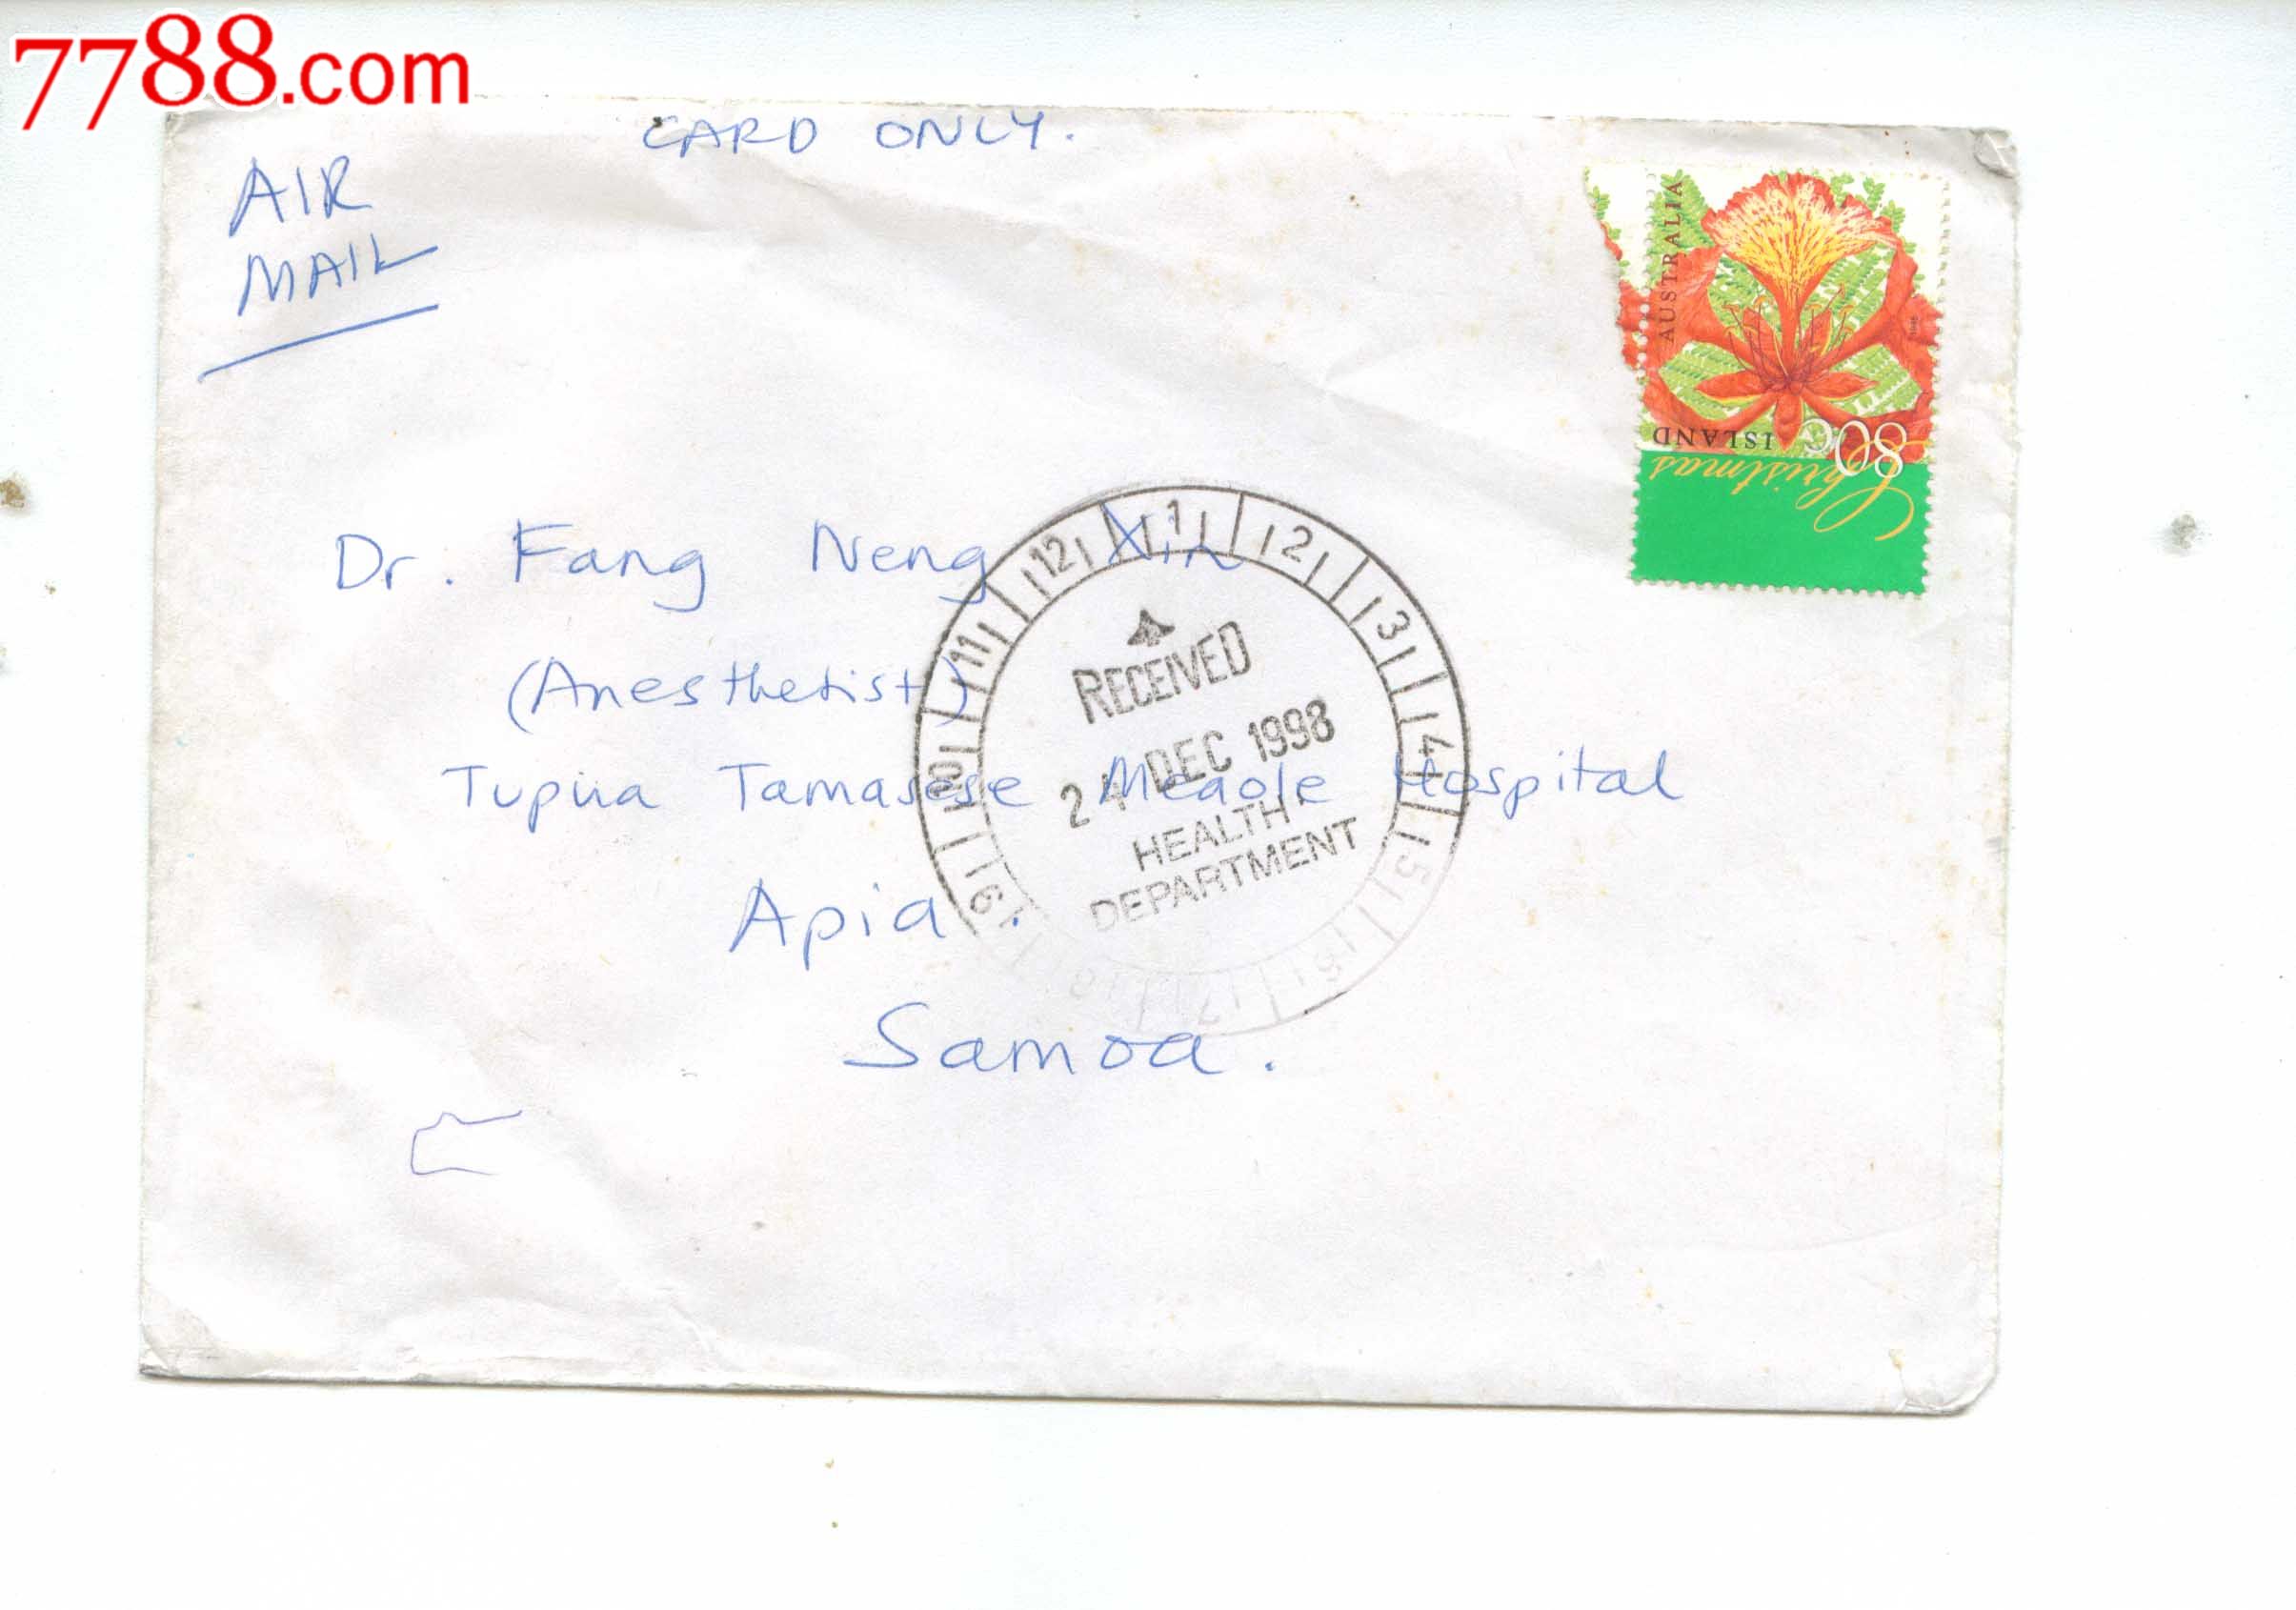 7788.com
CARD ONLY.
AIR
MAIL
AUSTRALIA
80c
ISLAND
Christmas
Dr. Fang Neng Xin
(Anesthetist)
Tupua Tamasese Meaole Hospital
Apia.
Samoa.
12 1 2 3 4 5 6 7 8 9 10 11
RECEIVED
24 DEC 1998
HEALTH
DEPARTMENT